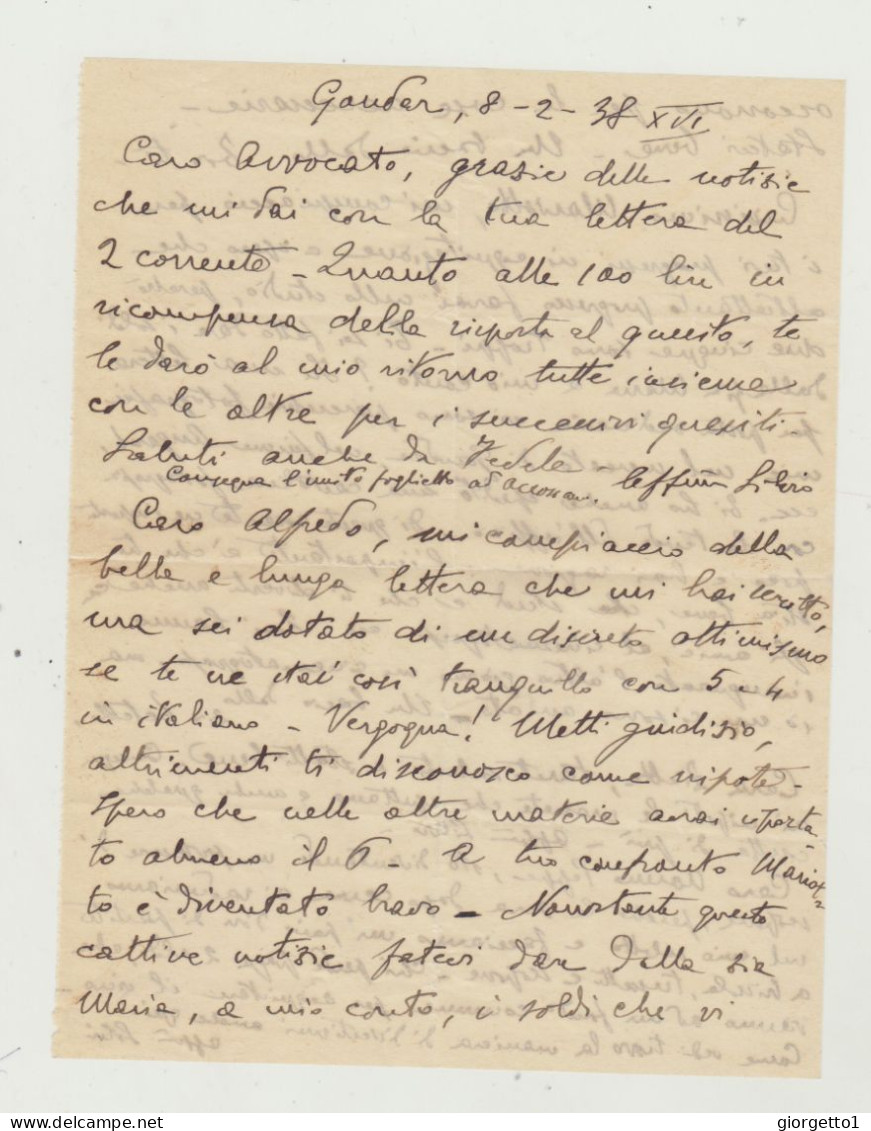 Gondar, 8-2-38 XVI
Caro Avvocato, grazie delle notizie
che mi dai con la tua lettera del
2 corrente - Quanto alle 100 lire in
ricompensa della risposta al quesito, te
le darò al mio ritorno tutte insieme
con le altre per i successivi quesiti -
Saluti anche da Fedele - Silvio
Consegna l'unito foglietto ad
Caro Alfredo, mi compiaccio della
bella e lunga lettera che mi hai scritto,
ma sei dotato di un discreto ottimismo
se te ne stai così tranquillo con 5 e 4
in italiano - Vergogna! Metti giudizio,
altrimenti ti disconosco come nipote -
Spero che nelle altre materie avrai riporta-
to almeno il 6 - A tuo confronto Mariot-
to è diventato bravo - Nonostante queste
cattive notizie fatevi dare dalla zia
Maria, a mio conto, i soldi che vi
delcampe.net
giorgetto1